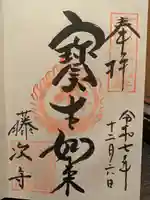 奉拝
寳生如来
令和七年
十二月六日
藤次寺